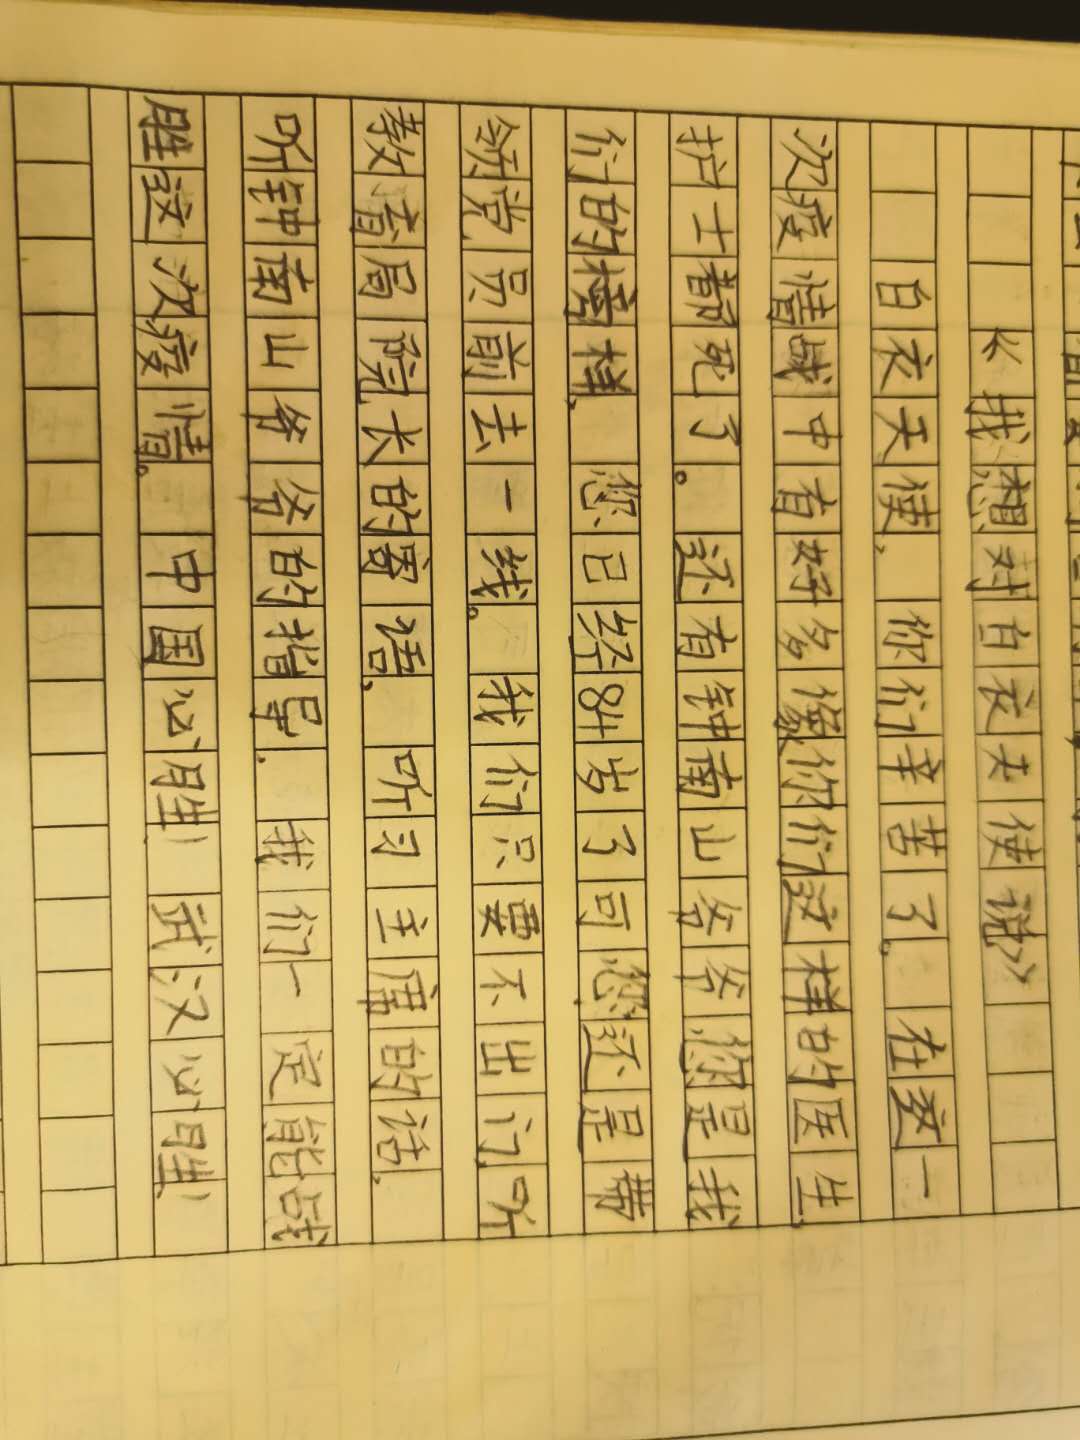 《我想对白衣天使说》
白衣天使，你们辛苦了。在这一
次疫情战中有好多像你们这样的医生，
护士都死了。还有钟南山爷爷您是我
们的榜样，您已经84岁了可您还是带
领党员前去一线。我们只要不出门，听
教育局院长的寄语，听习主席的话，
听钟南山爷爷的指导。我们一定能战
胜这次疫情。中国必胜！武汉必胜！